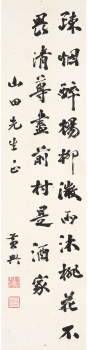 疎烟醉楊柳微雨沐桃花不
畏清尊盡前村是酒家
山田先生正
黃興